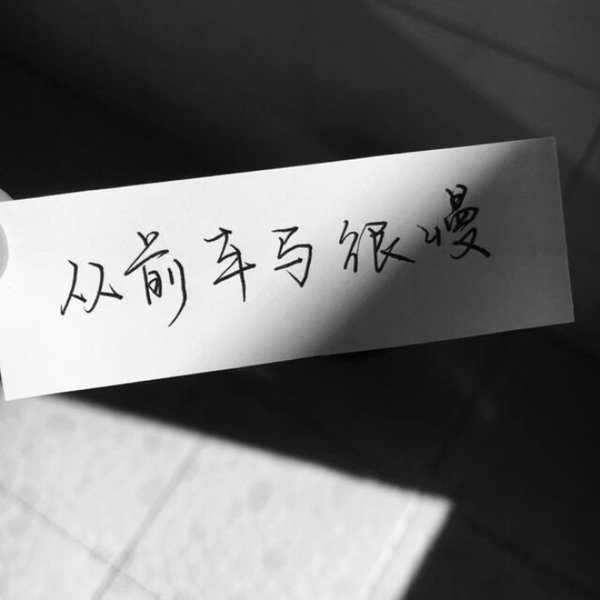 从前车马很慢